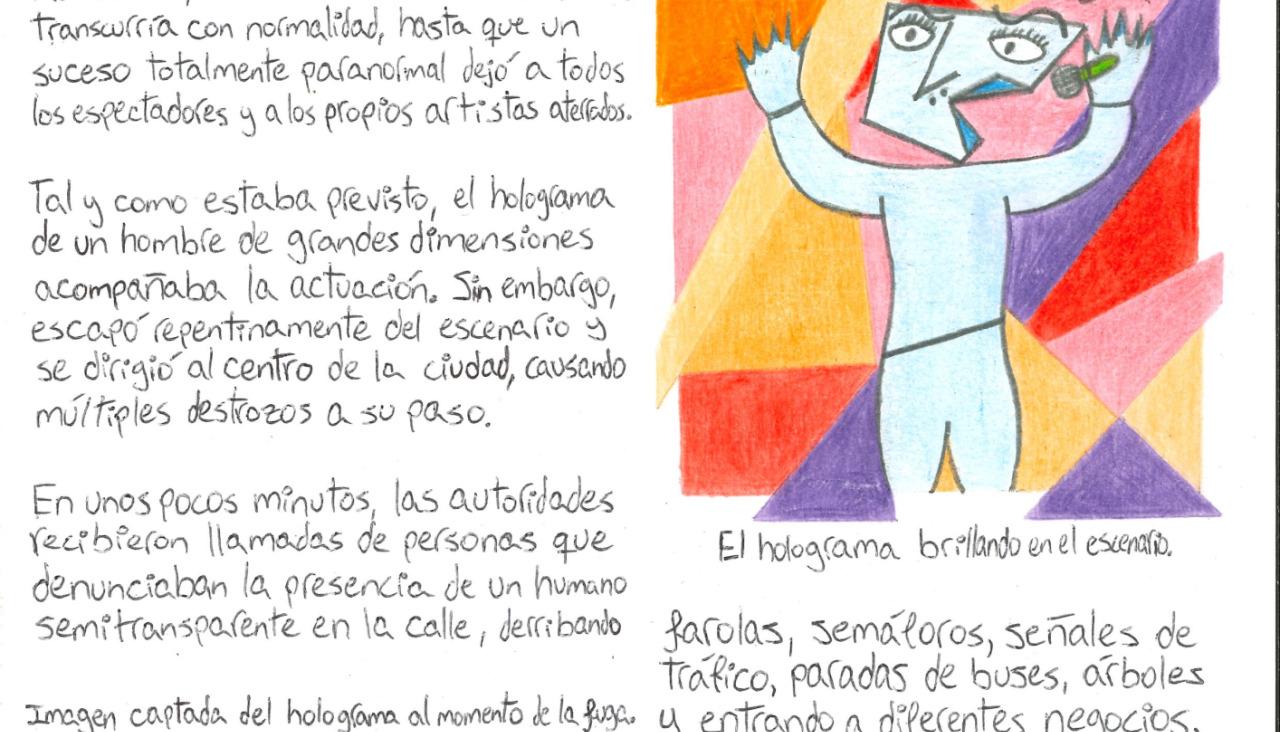 transcurría con normalidad, hasta que un
suceso totalmente paranormal dejó a todos
los espectadores y a los propios artistas aterrados.
Tal y como estaba previsto, el holograma
de un hombre de grandes dimensiones
acompañaba la actuación. Sin embargo,
escapó repentinamente del escenario y
se dirigió al centro de la ciudad, causando
múltiples destrozos a su paso.
En unos pocos minutos, las autoridades
recibieron llamadas de personas que
denunciaban la presencia de un humano
semitransparente en la calle, derribando
Imagen captada del holograma al momento de la fuga.
El holograma brillando en el escenario.
farolas, semáforos, señales de
tráfico, paradas de buses, árboles
y entrando a diferentes negocios.